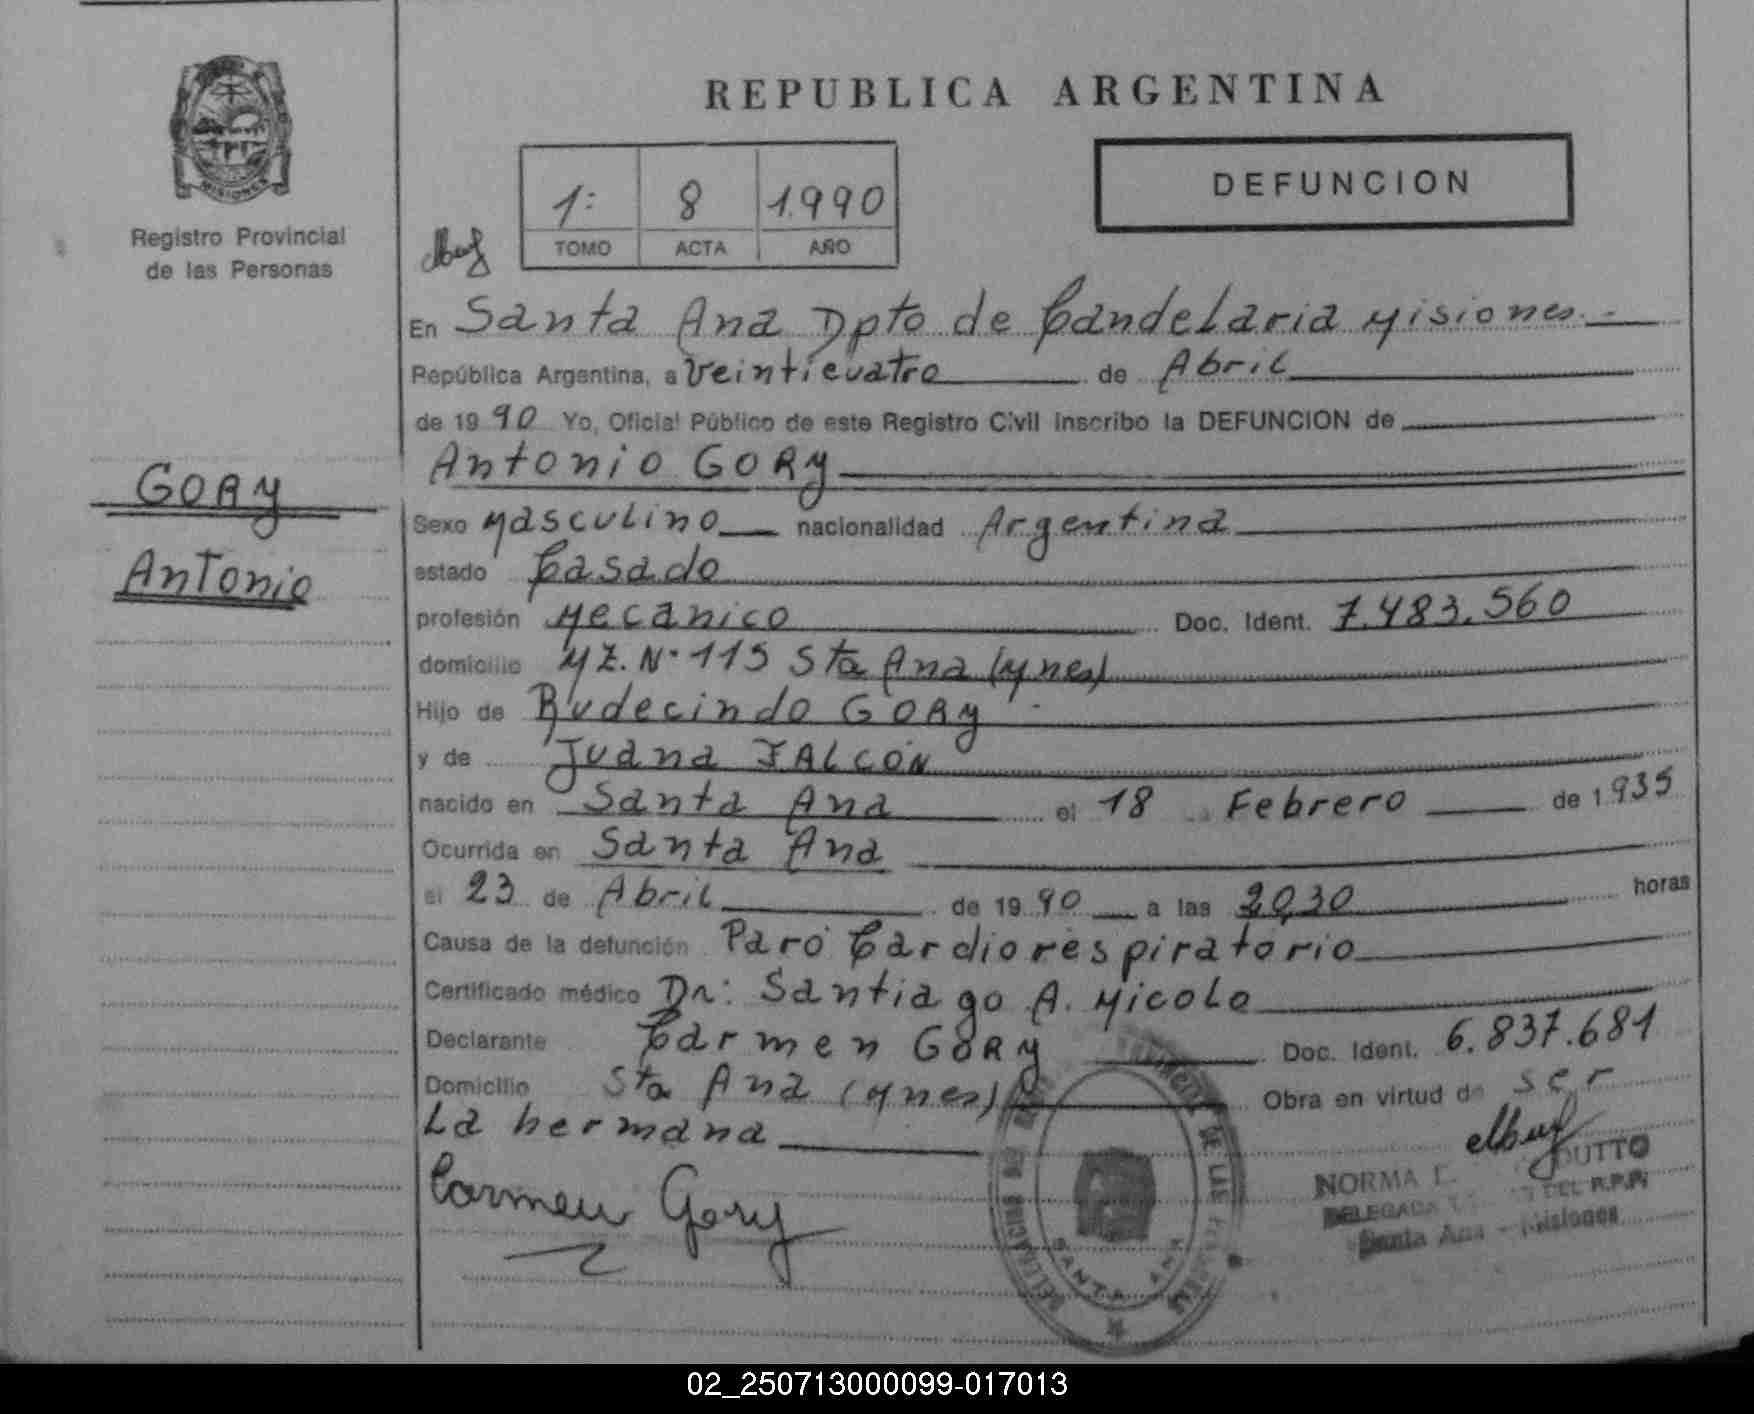 REPUBLICA ARGENTINA
MISIONES
Registro Provincial
de las Personas
1: 8 1.990
TOMO ACTA AÑO
DEFUNCION
En Santa Ana Dpto de Candelaria Misiones.-
República Argentina, a Veinticuatro de Abril
de 1990 Yo, Oficial Público de este Registro Civil inscribo la DEFUNCION de
Antonio GORY
GORY
Antonio
Sexo Masculino nacionalidad Argentina
estado Casado
profesión Mecánico Doc. Ident. 7.483.560
domicilio Mz. Nº 115 Sta Ana (Mnes)
Hijo de Rudecindo GORY
y de Juana FALCÓN
nacido en Santa Ana el 18 Febrero de 1935
Ocurrida en Santa Ana
el 23 de Abril de 1990 a las 20,30 horas
Causa de la defunción Paro Cardiorespiratorio
Certificado médico Dr: Santiago A. Micolo
Declarante Carmen GORY Doc. Ident. 6.837.681
Domicilio Sta Ana (Mnes) Obra en virtud de ser
La hermana
Carmen Gory
DE LAS
SANTA ANA
NORMA
DELEGADA DEL R.P.P.
Santa Ana - Misiones
02_250713000099-017013